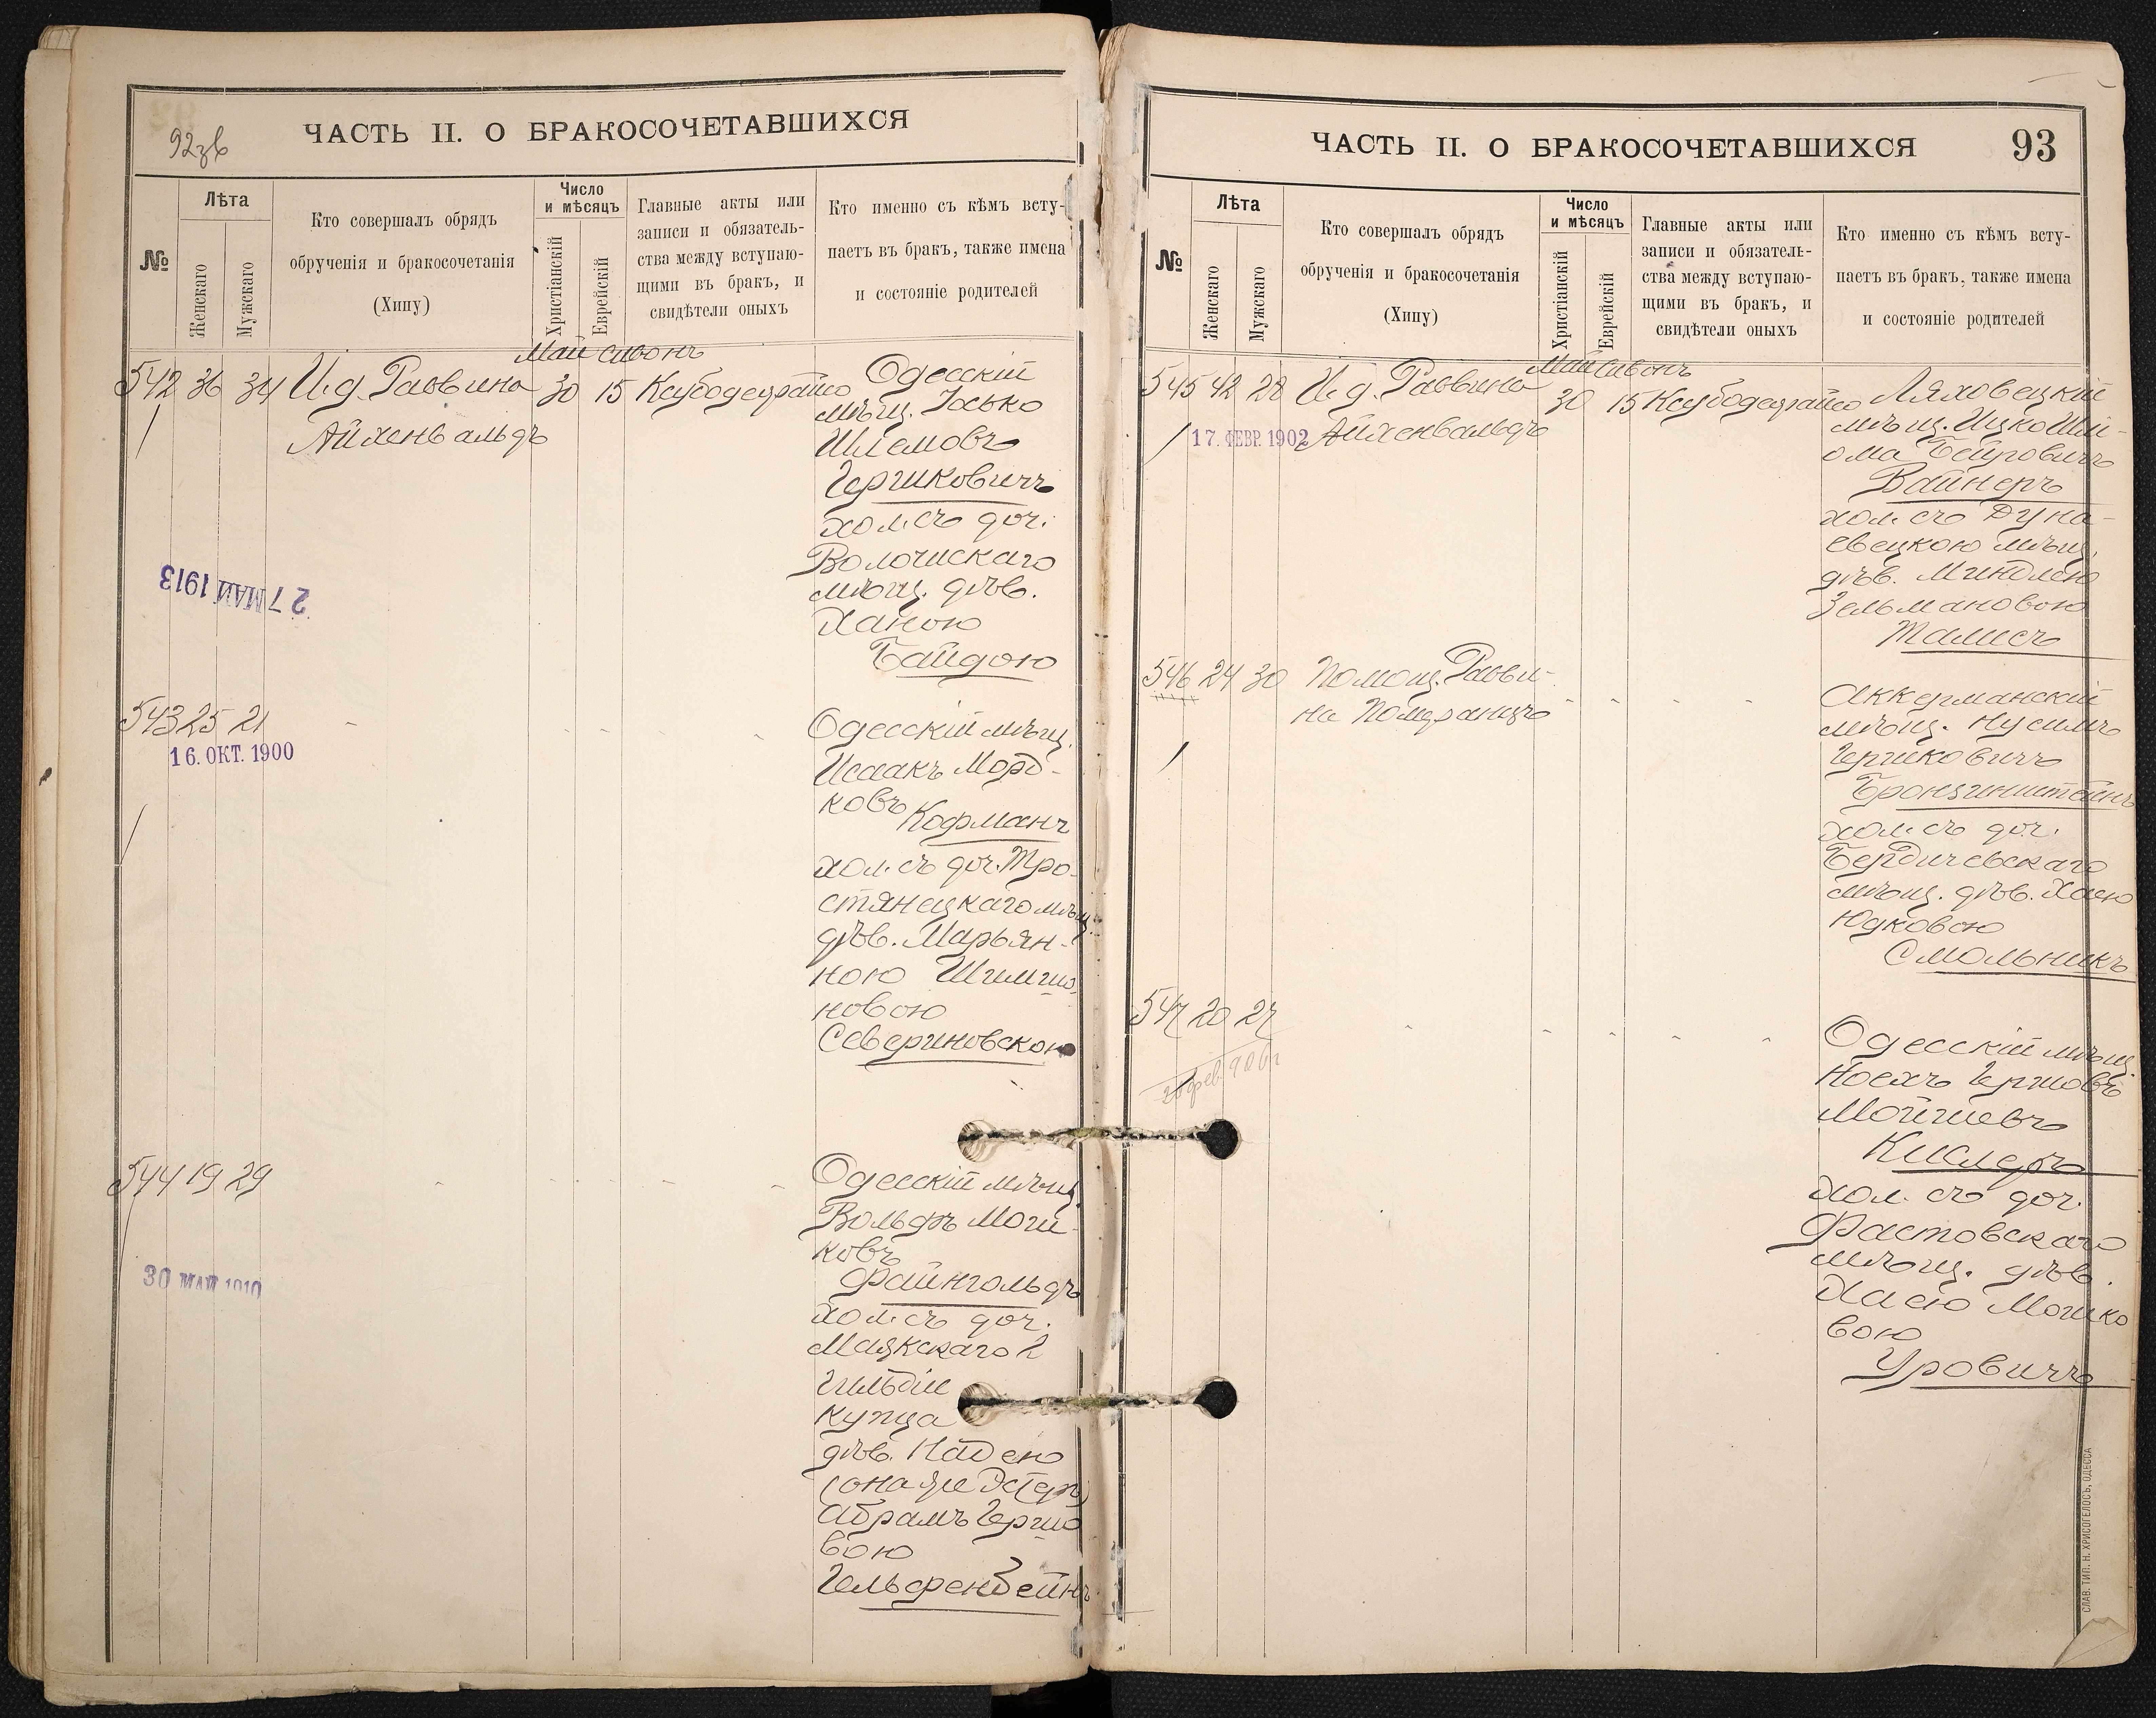 92 об
ЧАСТЬ II. О БРАКОСОЧЕТАВШИХСЯ
№
Лѣта
Женскаго
Мужскаго
Кто совершалъ обрядъ
обрученія и бракосочетанія
(Хипу)
Число
и мѣсяцъ
Христіанскій
Еврейскій
Главные акты или
записи и обязатель-
ства между вступаю-
щими въ бракъ, и
свидѣтели оныхъ
Кто именно съ кѣмъ всту-
паетъ въ бракъ, также имена
и состояніе родителей
Май Сивонъ
542 36 34 И.д. Раввина 30 15 Ксубодеграйсо
Айхенвальдъ
Одесскій
мѣщ. Іосько
Шлемовъ
Гершковичъ
хол. съ доч.
Волочискаго
мѣщ. дѣв.
Ханою
Байдою
27 МАЙ 1913
543 25 21 - - - - -
16. ОКТ. 1900
Одесскій мѣщ.
Исаакъ Морд-
ковъ Кофманъ
хол. съ доч. Тро-
стянецкаго мѣщ.
дѣв. Марьян-
ною Шимшо-
новою
Севериновскою
544 19 29 - - - - -
30 МАЙ 1910
Одесскій мѣщ.
Вольфъ Мош-
ковъ
Файнгольдъ
хол. съ доч.
Маякскаго 2
гильдіи
купца
дѣв. Надею
(она же Эстеръ)
Абрамъ Гершо
вою
Гельфенбейнъ
ЧАСТЬ II. О БРАКОСОЧЕТАВШИХСЯ
93
№
Лѣта
Женскаго
Мужскаго
Кто совершалъ обрядъ
обрученія и бракосочетанія
(Хипу)
Число
и мѣсяцъ
Христіанскій
Еврейскій
Главные акты или
записи и обязатель-
ства между вступаю-
щими въ бракъ, и
свидѣтели оныхъ
Кто именно съ кѣмъ всту-
паетъ въ бракъ, также имена
и состояніе родителей
Май Сивонъ
545 42 28 И.д. Раввина 30 15 Ксубодеграйсо
17. ФЕВР. 1902 Айхенвальдъ
Ляховецкій
мѣщ. Ицко Шлі-
ома Беировичъ
Вайнеръ
хол. съ Дуна-
евецкою мѣщ.
дѣв. Миндлею
Зельмановою
Талисъ
546 24 30 Помощ. Равви- - - - -
на Померанцъ
Аккерманскій
мѣщ. Нусимъ
Гершковичъ
Бронзинштейнъ
хол. съ доч.
Бердичевскаго
мѣщ. дѣв. Хаею
Юдковою
Смольникъ
547 20 27 - - - - -
Одесскій мѣщ.
Ноехъ Гершовъ
Мойшевъ
Кислеръ
хол. съ доч.
Фастовскаго
мѣщ. дѣв.
Хасею Мошко
вою
Уровичъ
СЛАВ. ТИП. Н. ХРИСОГЕЛОСЪ, ОДЕССА